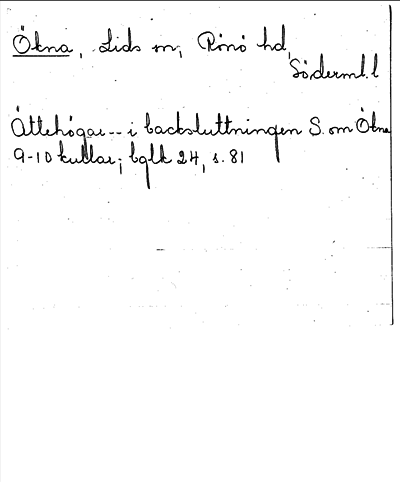 Ökna, Lids sn, Rönö hd,
Söderml. l
Ättehögar -- i backsluttningen S. om Ökna
9-10 kullar; bglk 24, s. 81